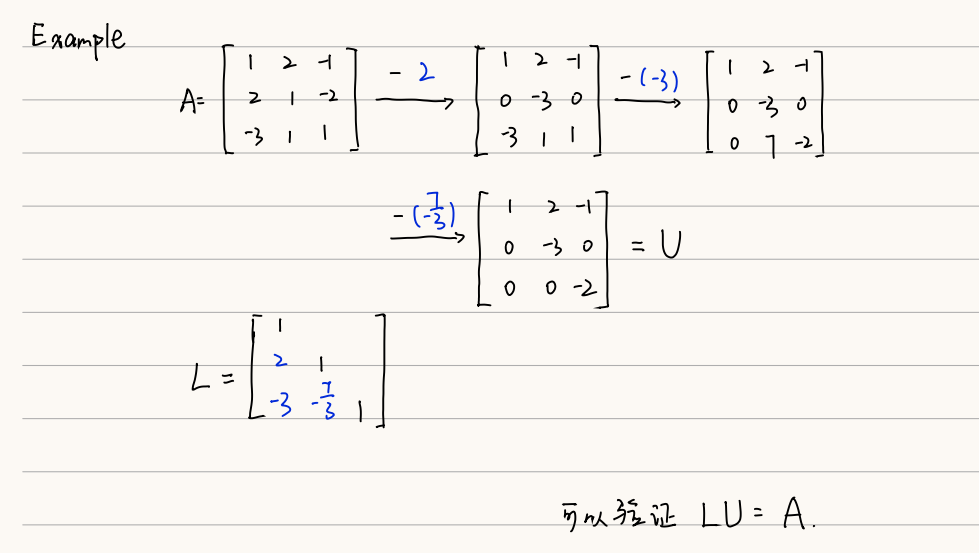 Example
A= [ 1 2 -1 ; 2 1 -2 ; -3 1 1 ] - 2 → [ 1 2 -1 ; 0 -3 0 ; -3 1 1 ] -(-3) → [ 1 2 -1 ; 0 -3 0 ; 0 7 -2 ]
-(7/-3) → [ 1 2 -1 ; 0 -3 0 ; 0 0 -2 ] = U
L = [ 1 ; 2 1 ; -3 -7/3 1 ]
可以验证 LU = A.